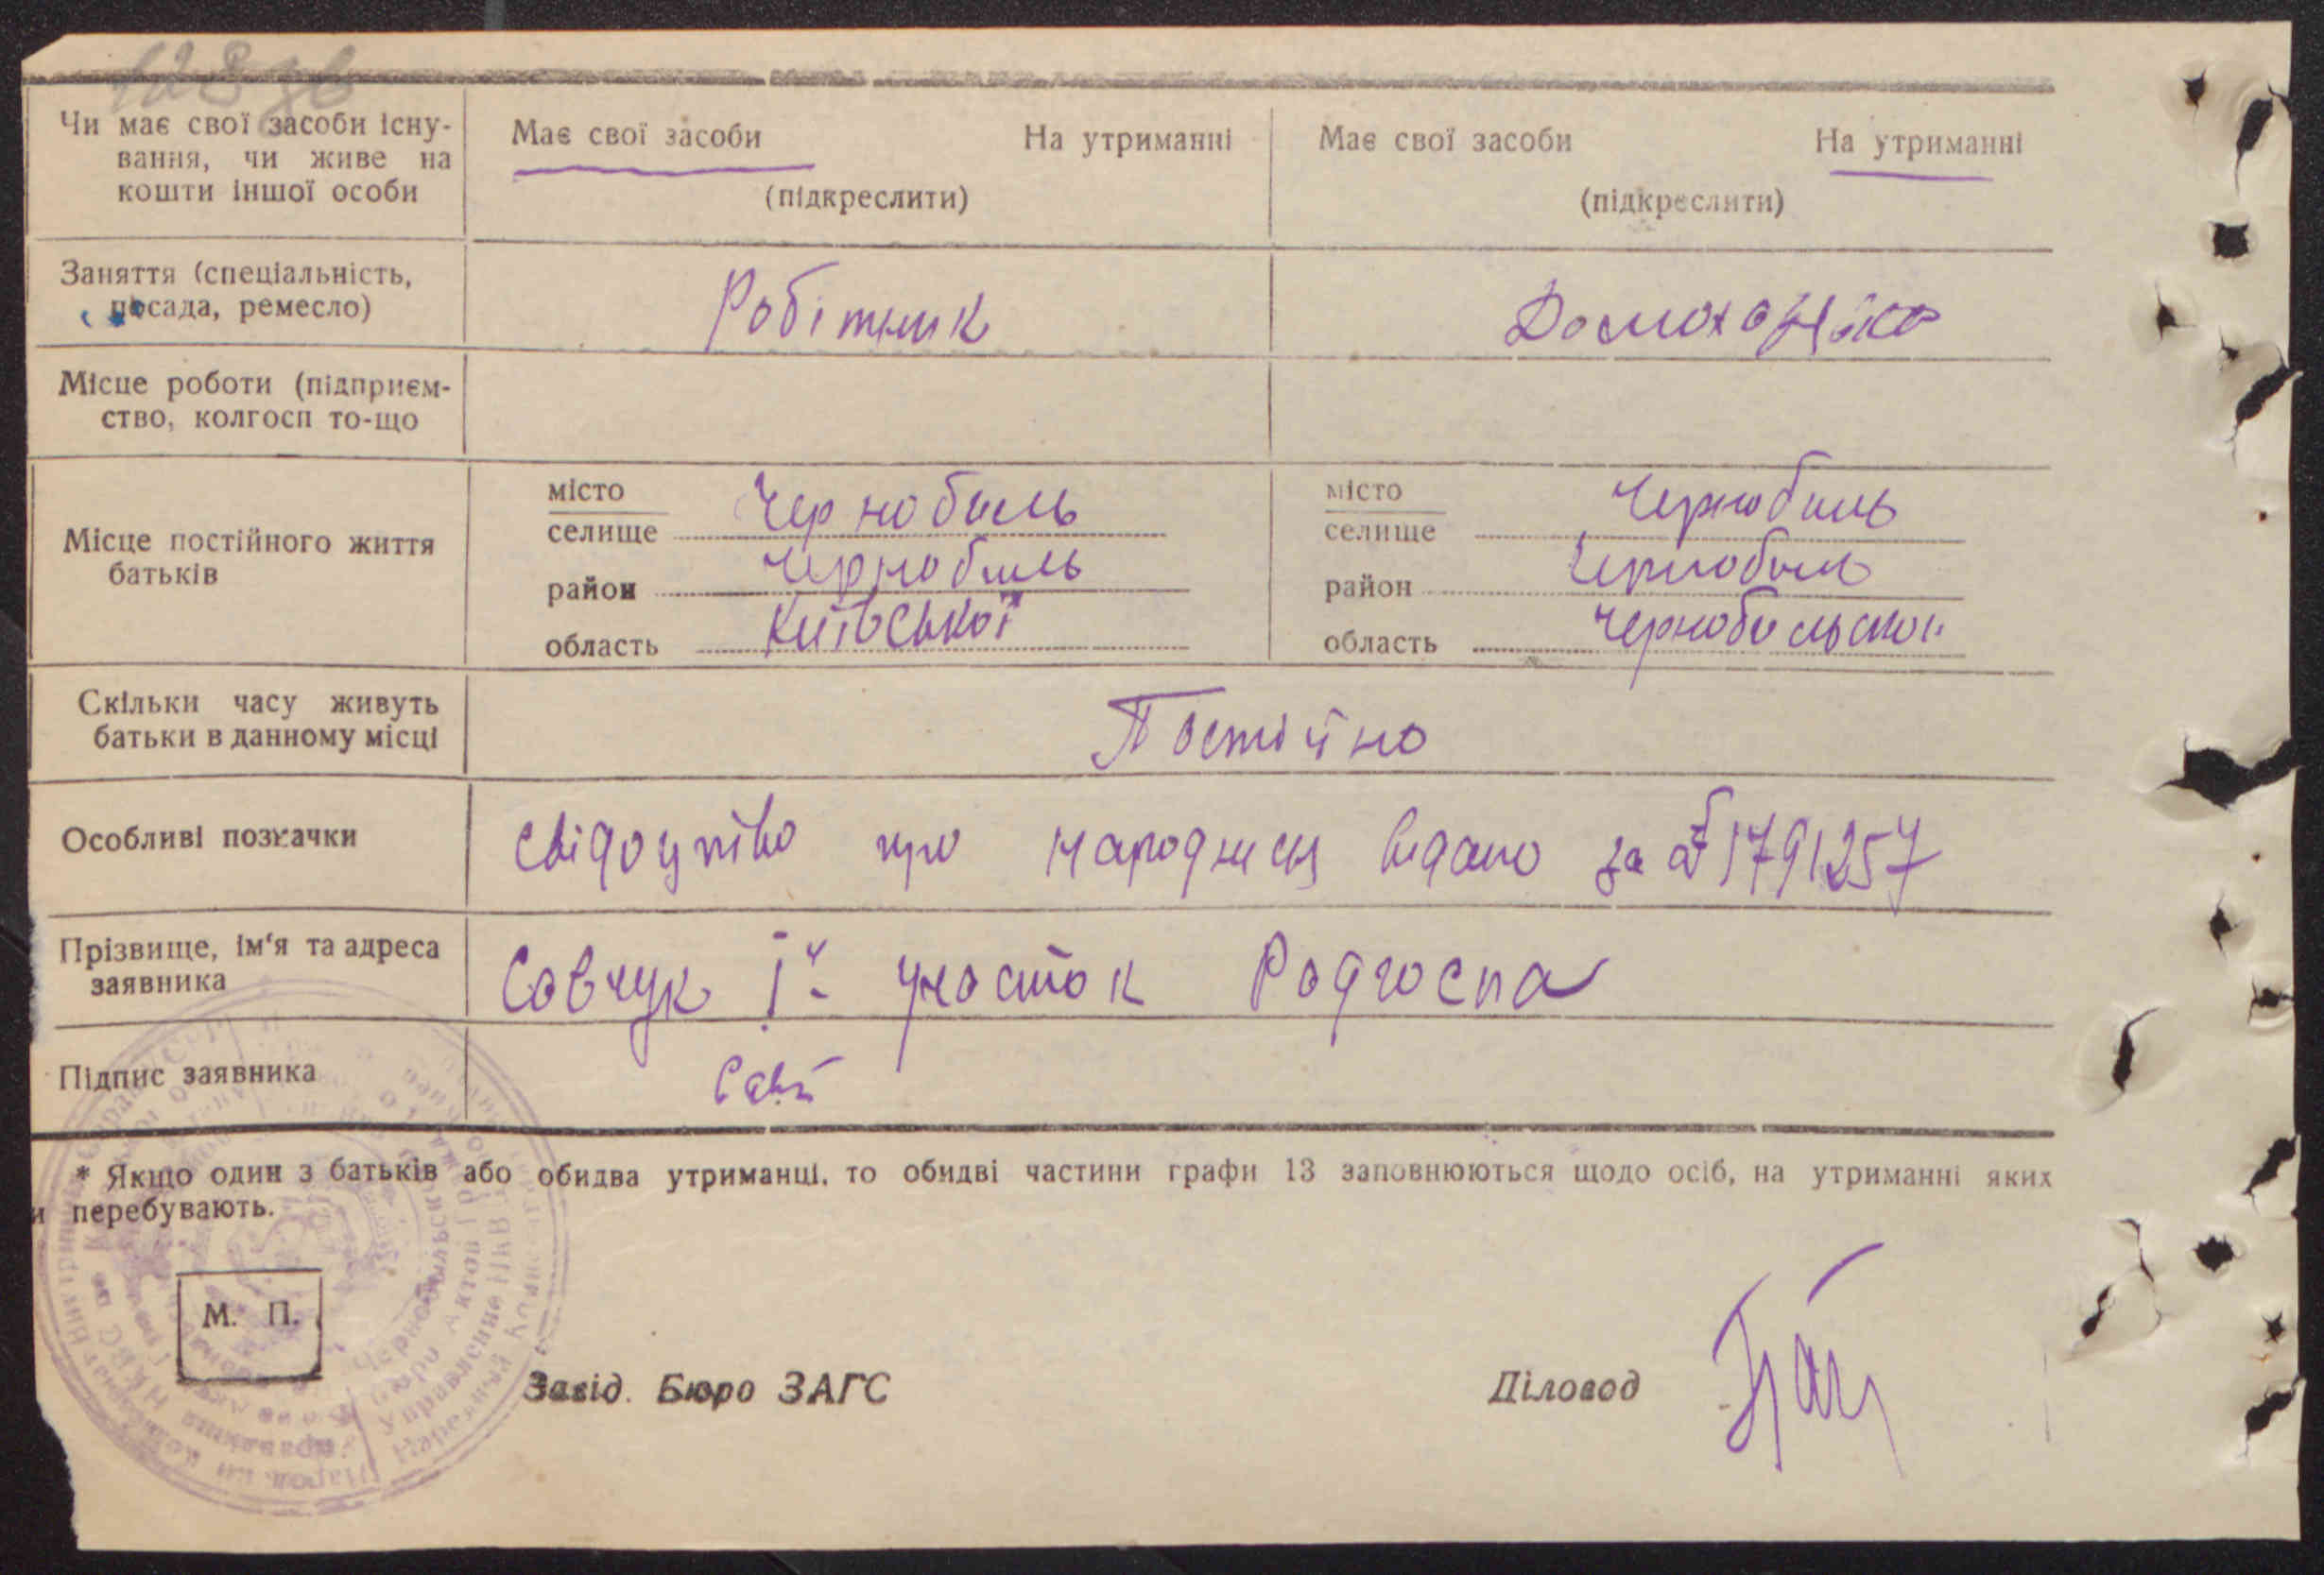 128 зв
Чи має свої засоби існу-
вання, чи живе на
кошти іншої особи
Має свої засоби На утриманні
(підкреслити)
Має свої засоби На утриманні
(підкреслити)
Заняття (спеціальність,
посада, ремесло)
Робітник
Домохазяйка
Місце роботи (підприєм-
ство, колгосп то-що
Місце постійного життя
батьків
місто
селище
Чернобиль
район Чернобиль
область Київської
місто
селище
Чернобиль
район Чернобиль
область Чернобильской
Скільки часу живуть
батьки в данному місці
Постійно
Особливі позначки
Свідоцтво про народження видано за № 1791257
Прізвище, ім'я та адреса
заявника
Савчук 1й участок Радгоспа
Підпис заявника
* Якщо один з батьків або обидва утриманці, то обидві частини графи 13 заповнюються щодо осіб, на утриманні яких
и перебувають.
М. П.
Завід. Бюро ЗАГС
Діловод